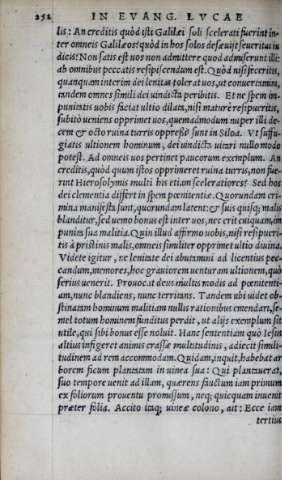 252 IN EVANG. LVCAE
lis: An creditis quòd isti Galilæi soli scelerati fuerint in-
ter omneis Galilæos: quòd in hos solos desæuijt seueritas iu
dicis? Non satis est uos non admittere quod admiserunt illi:
ab omnibus peccatis resipiscendum est. Quòd nisi feceritis,
quanquam interim dei lenitas tolerat uos, ut conuertamini,
tandem omnes simili dei uindicta peribitis. Et ne spem im-
punitatis uobis faciat ultio dilata, nisi maturè resipueritis,
subitò ueniens opprimet uos, quemadmodum nuper illi de-
cem & octo ruina turris oppressi sunt in Siloa. Vt suffu-
giatis ultionem hominum, dei uindicta uitari nullo modo
potest. Ad omneis uos pertinet paucorum exemplum. An
creditis, quòd quum istos opprimeret ruina turris, non fue-
runt Hierosolymis multi his etiam sceleratiores? Sed hos
dei clementia differt in spem pœnitentiæ. Quorundam cri-
mina manifesta sunt, quorundam latent: & suis quisq; malis
blanditur, sed uemo bonus est inter uos, nec erit cuiquam, im
punita sua malitia. Quin illud affirmo uobis, nisi resipueri-
tis à pristinis malis, omneis similiter opprimet ultio diuina.
Videte igitur, ne lenitate dei abutamini ad licentius pec-
candum, memores, hoc grauiorem uenturam ultionem, quò
serius uenerit. Prouocat deus multis modis ad pœnitenti-
am, nunc blandiens, nunc territans. Tandem ubi uidet ob-
stinatam hominum malitiam nullis rationibus emendari, se-
mel totum hominem funditus perdit, ut alijs exemplum sit
utile, qui sibi bonus esse noluit. Hanc sententiam quò Iesus
altius infigeret animis crassæ multitudinis, adiecit simili-
tudinem ad rem accommodam. Quidam, inquit, habebat ar
borem ficum plantatam in uinea sua: Qui plantauerat,
suo tempore uenit ad illam, quærens fructum iam primum
ex foliorum prouentu promissum, neq; quicquam inuenit
præter folia. Accito itaq; uineæ colono, ait: Ecce iam
tertius